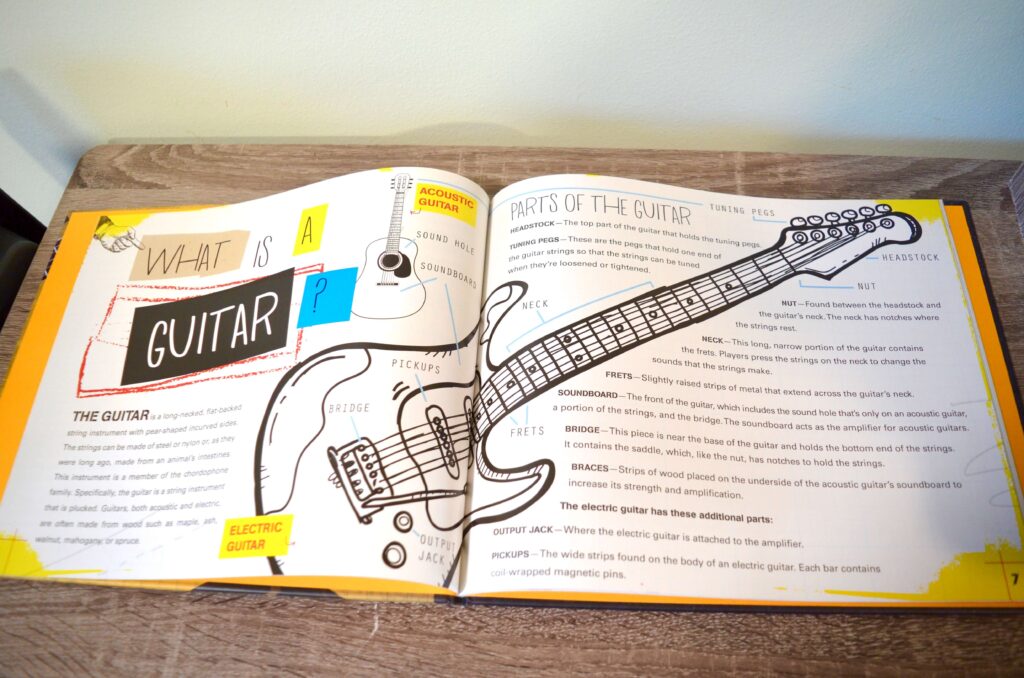 WHAT IS A
GUITAR ?
ACOUSTIC
GUITAR
SOUND HOLE
SOUNDBOARD
PICKUPS
BRIDGE
THE GUITAR is a long-necked, flat-backed
string instrument with pear-shaped incurved sides.
The strings can be made of steel or nylon or, as they
were long ago, made from an animal's intestines
This instrument is a member of the chordophone
family. Specifically, the guitar is a string instrument
that is plucked. Guitars, both acoustic and electric,
are often made from wood such as maple, ash,
walnut, mahogany, or spruce.
ELECTRIC
GUITAR
OUTPUT
JACK
PARTS OF THE GUITAR
TUNING PEGS
HEADSTOCK
NUT
NECK
FRETS
HEADSTOCK—The top part of the guitar that holds the tuning pegs.
TUNING PEGS—These are the pegs that hold one end of
the guitar strings so that the strings can be tuned
when they're loosened or tightened.
NUT—Found between the headstock and
the guitar's neck. The neck has notches where
the strings rest.
NECK—This long, narrow portion of the guitar contains
the frets. Players press the strings on the neck to change the
sounds that the strings make.
FRETS—Slightly raised strips of metal that extend across the guitar's neck.
SOUNDBOARD—The front of the guitar, which includes the sound hole that's only on an acoustic guitar,
a portion of the strings, and the bridge. The soundboard acts as the amplifier for acoustic guitars.
BRIDGE—This piece is near the base of the guitar and holds the bottom end of the strings.
It contains the saddle, which, like the nut, has notches to hold the strings.
BRACES—Strips of wood placed on the underside of the acoustic guitar's soundboard to
increase its strength and amplification.
The electric guitar has these additional parts:
OUTPUT JACK—Where the electric guitar is attached to the amplifier.
PICKUPS—The wide strips found on the body of an electric guitar. Each bar contains
coil-wrapped magnetic pins.
7